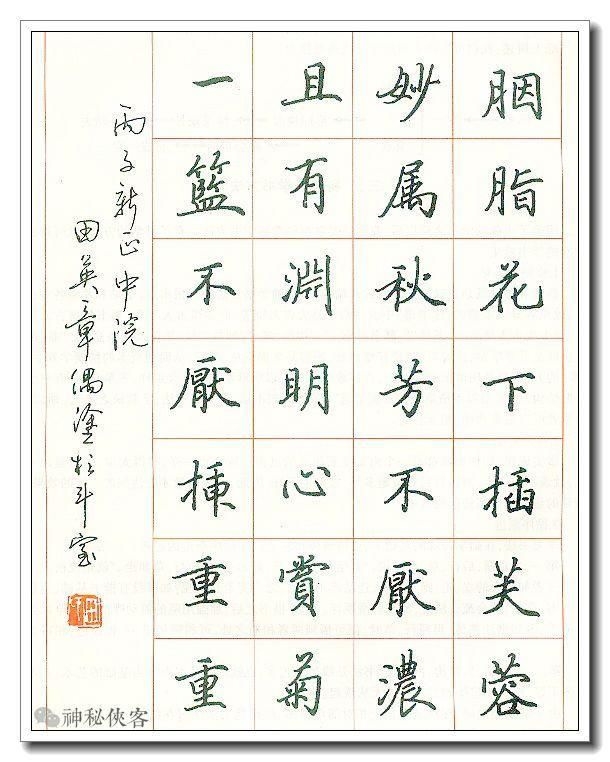 胭脂花下插芙蓉
妙属秋芳不厭濃
且有淵明心賞菊
一籃不厭插重重
丙子新正中浣
田英章偶塗於斗室
神秘侠客